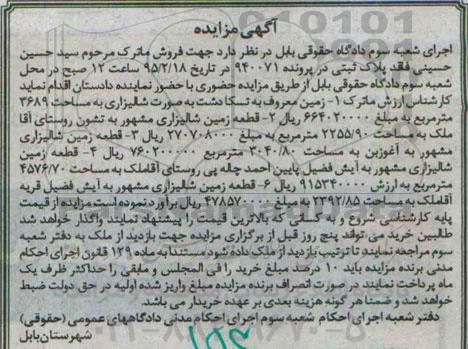 آگهی مزایده
اجرای شعبه سوم دادگاه حقوقی بابل در نظر دارد جهت فروش ماترک مرحوم سید حسین
حسینی فاقد پلاک ثبتی در پرونده ۹۴۰۰۷۱ در تاریخ ۹۵/۲/۱۸ ساعت ۱۲ صبح در محل
شعبه سوم دادگاه حقوقی بابل از طریق مزایده حضوری با حضور نماینده دادستان اقدام نماید
کارشناس ارزش ماترک ۱- زمین معروف به تسکا دشت به صورت شالیزاری به مساحت ۳۶۸۹
مترمربع به مبلغ ۶۶۴۰۲۰۰۰۰ ریال ۲- قطعه زمین شالیزاری مشهور به تشون روستای آقا
ملک به مساحت ۲۲۵۵/۹۰ مترمربع به مبلغ ۲۷۰۷۰۸۰۰۰ ریال ۳- قطعه زمین شالیزاری
مشهور به آغوزبن به مساحت ۳۰۴۰/۸۰ مترمربع ۷۶۰۲۰۰۰۰۰ ریال ۴- قطعه زمین
شالیزاری مشهور به آیش فضیل پایین احمد چاله پی روستای آقاملک به مساحت ۴۵۷۶/۷۰
مترمربع به ارزش ۹۱۵۳۴۰۰۰۰ ریال ۶- قطعه زمین شالیزاری مشهور به آیش فضیل قریه
آقاملک به مساحت ۲۳۹۲/۸۵ به مبلغ ۴۷۸۵۷۰۰۰۰ ریال برآورد نموده است مزایده از قیمت
پایه کارشناسی شروع و به کسانی که بالاترین قیمت را پیشنهاد نمایند واگذار خواهد شد
طالبین خرید می تواند پنج روز قبل از برگزاری مزایده جهت بازدید از ملک به دفتر شعبه
سوم مراجعه نمایند تا ترتیب بازدید از ملک داده شود مستندا به ماده ۱۲۹ قانون اجرای احکام
مدنی برنده مزایده باید ۱۰ درصد مبلغ خرید را فی المجلس و مابقی را حداکثر ظرف یک
ماه پرداخت نمایند در صورت انصراف برنده مزایده مبلغ واریز شده اولیه در حق دولت ضبط
خواهد شد و ضمنا هر گونه هزینه بعدی بر عهده خریدار می باشد.
دفتر شعبه اجرای احکام شعبه سوم اجرای احکام مدنی دادگاههای عمومی (حقوقی)
شهرستان بابل